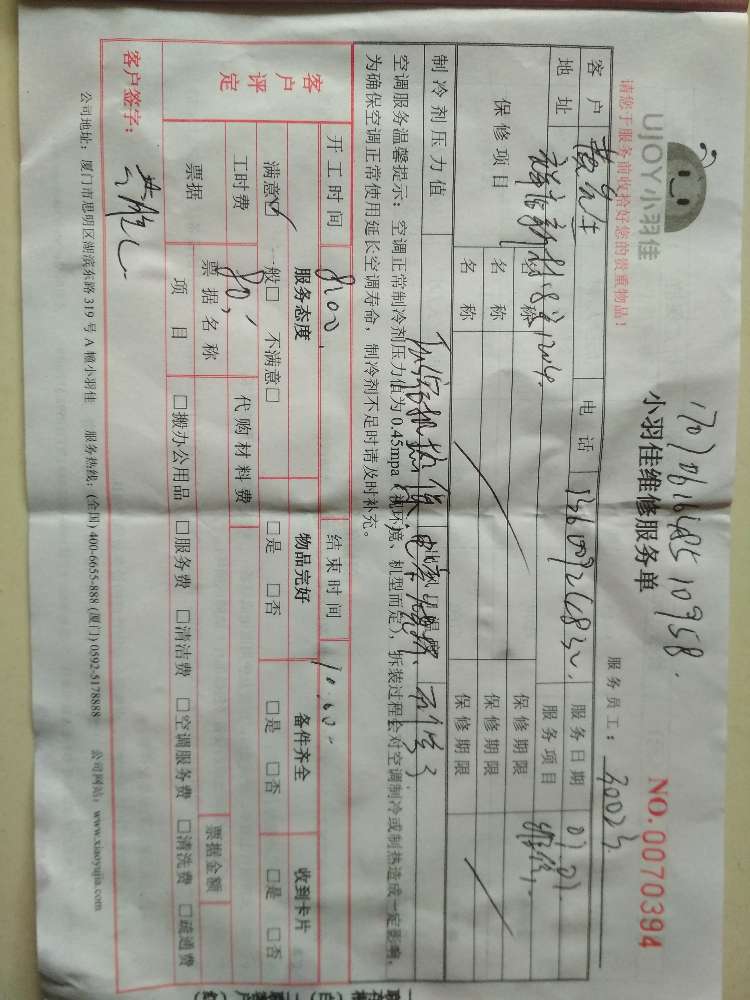 UJOY小羽佳
请您于服务前收拾好您的贵重物品!
小羽佳维修服务单
NO. 0070394
服务员工: 30023
客户 黄先生 电话 服务日期 07.07.
地址 服务项目 维修
保修项目 名称 保修期限
名称 保修期限
名称 保修期限
制冷剂压力值
空调服务温馨提示:空调正常制冷剂压力值为0.45mpa(视环境、机型而定),拆装过程会对空调制冷或制热造成一定影响,
为确保空调正常使用延长空调寿命,制冷剂不足时请及时补充。
客户评定
开工时间 8:00 结束时间 10:00
服务态度 物品完好 备件齐全 收到卡片
满意☑ 一般□ 不满意□ □是 □否 □是 □否 □是 □否
工时费 80 代购材料费
票据 票据名称 票据金额
项目 □搬办公用品 □服务费 □清洁费 □空调服务费 □清洗费 □疏通费
客户签字:
公司地址:厦门市思明区湖滨东路319号A幢小羽佳 服务热线:(全国)400-6655-888 (厦门)0592-5178888 公司网站:www.xiaoyujia.com